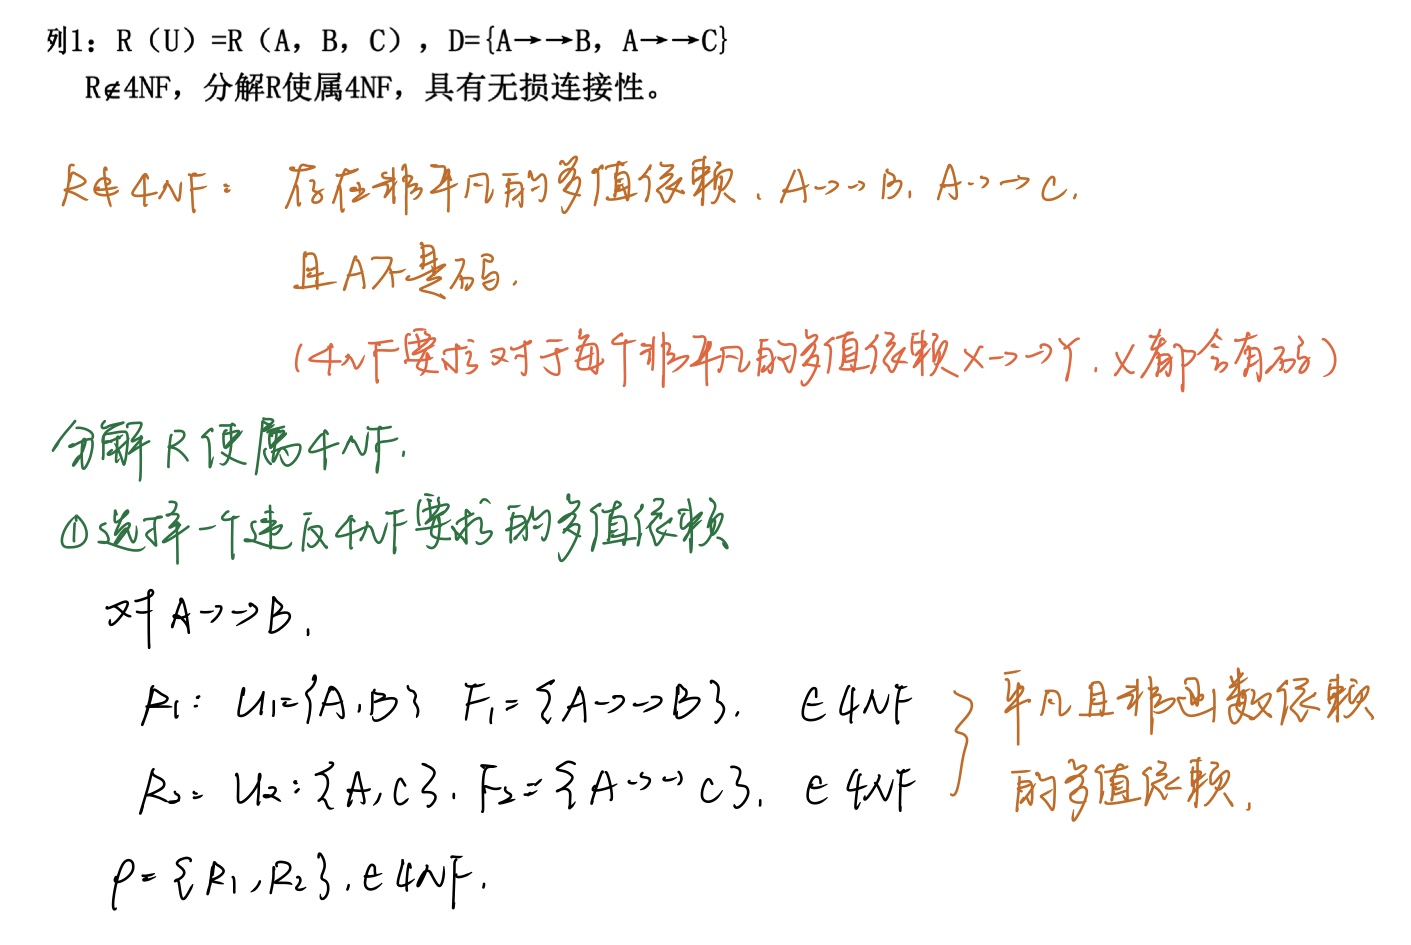 列1：R（U）=R（A，B，C），D={A→→B，A→→C}
R∉4NF，分解R使属4NF，具有无损连接性。
R∉4NF： 存在非平凡的多值依赖，A→→B，A→→C，
且A不是码．
（4NF要求对于每个非平凡的多值依赖X→→Y，X都含有码）
分解R使属4NF．
①选择一个违反4NF要求的多值依赖
对A→→B，
R₁： U₁={A,B} F₁={A→→B}． ∈4NF
平凡且非函数依赖
R₂： U₂：{A,C}． F₂={A→→C}． ∈4NF
的多值依赖，
ρ={R₁,R₂}．∈4NF．